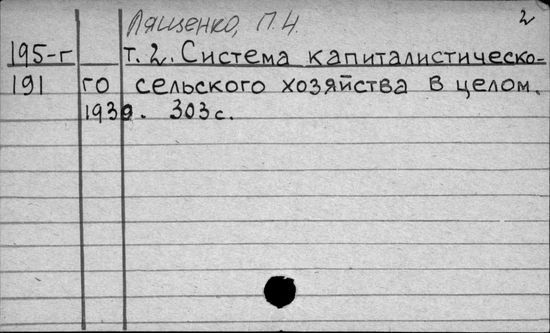 Лященко, П.Н. 2
195-г т. 2. Система капиталистическо-
191 го сельского хозяйства в целом.
1930. 303 с.